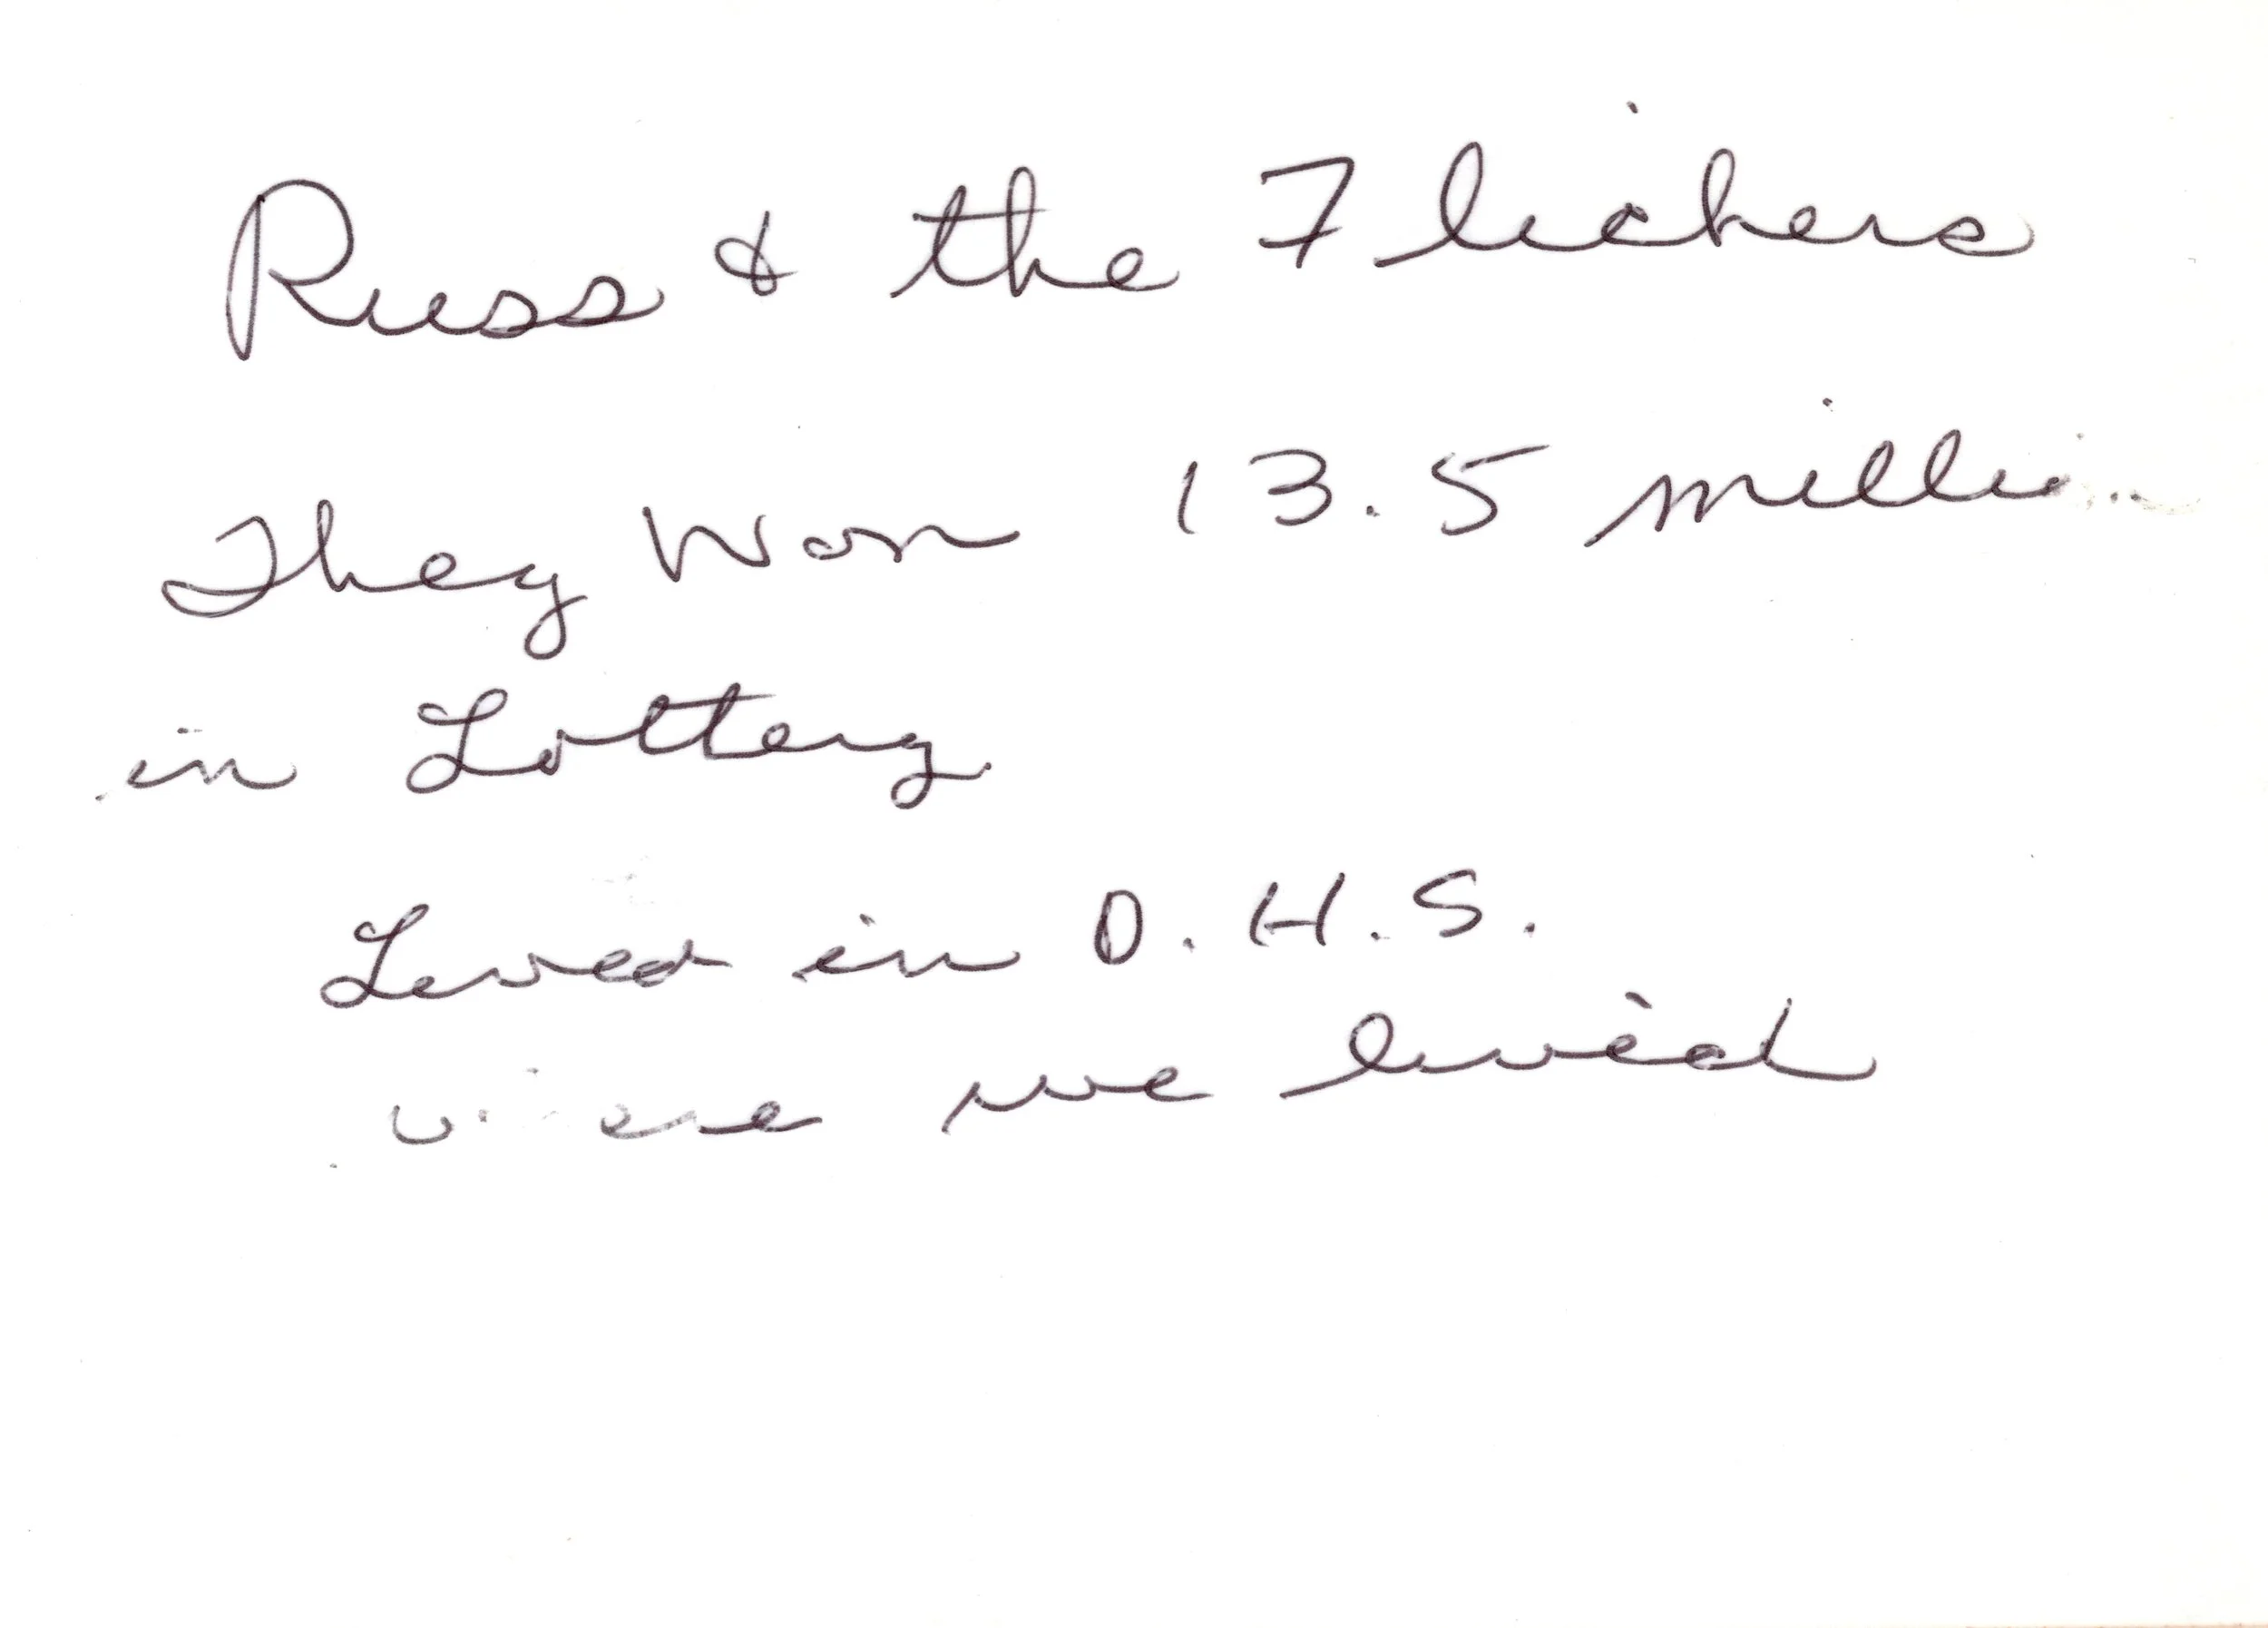 Russ & the Flickers
They Won 13.5 million
in Lottery
Lived in D.H.S.
where we lived